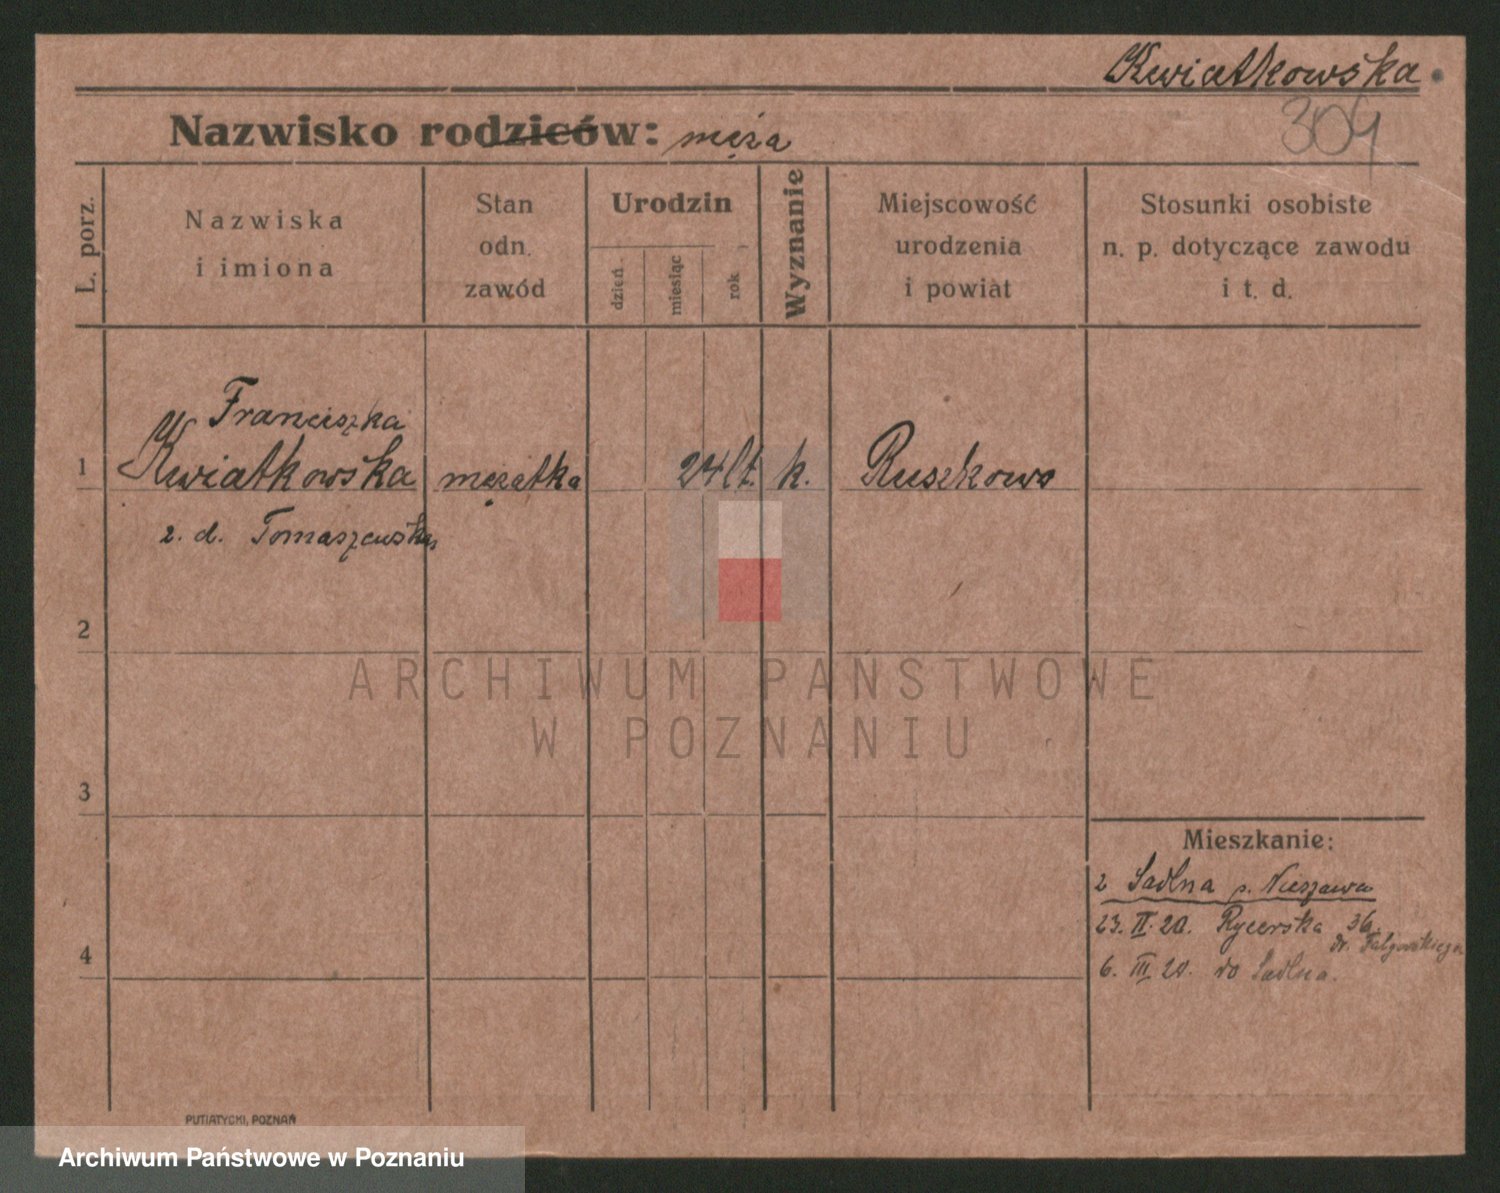 Kwiatkowska
304
Nazwisko rodziców: męża
L. porz.
Nazwiska
i imiona
Stan
odn.
zawód
Urodzin
dzień
miesiąc
rok
Wyznanie
Miejscowość
urodzenia
i powiat
Stosunki osobiste
n. p. dotyczące zawodu
i t. d.
Franciszka
1 Kwiatkowska mężatka 24 lt. k. Ruszkowo
z. d. Tomaszewska
2
ARCHIWUM PAŃSTWOWE
W POZNANIU
3
Mieszkanie:
z Sadlna p. Nieszawa
23. II. 20. Rycerska 36.
dr.
4
6. III. 20. do Sadlna.
PUTIATYCKI, POZNAŃ
Archiwum Państwowe w Poznaniu